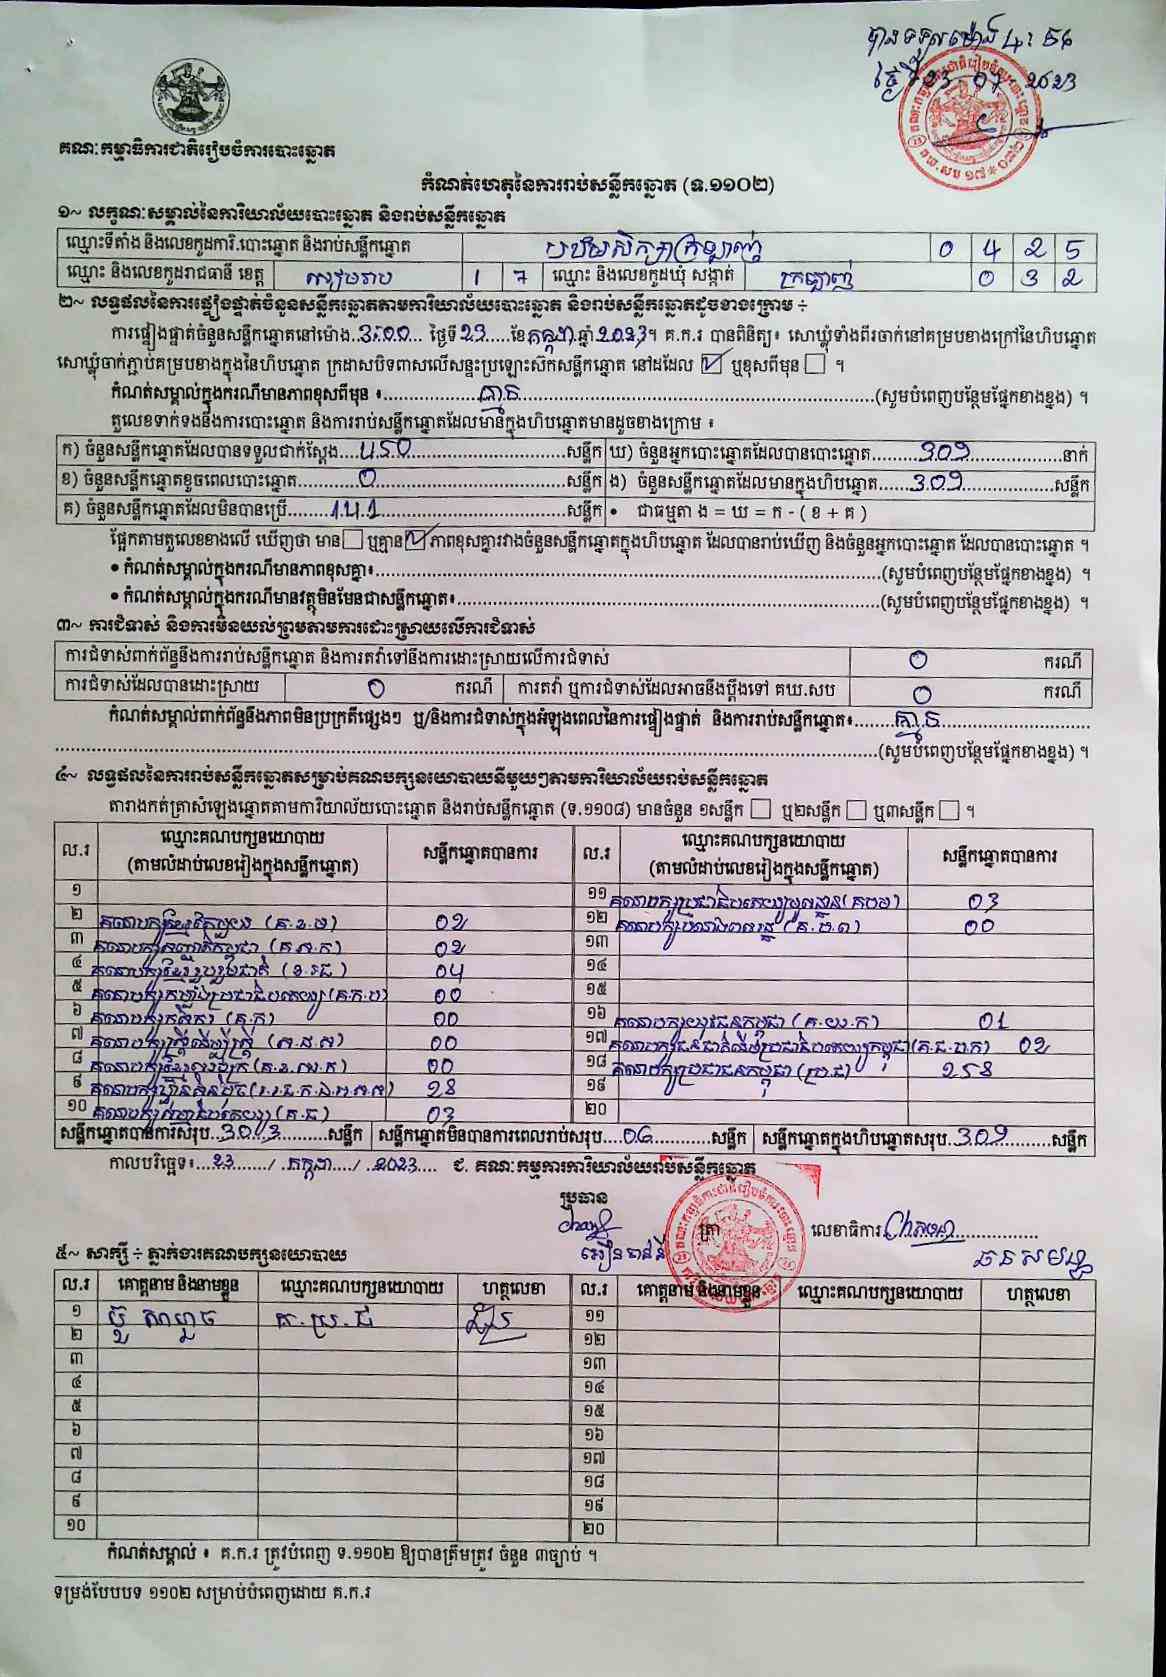 បានទទួលម៉ោង 4:56
ថ្ងៃទី 23 07 2023
គណៈកម្មាធិការជាតិរៀបចំការបោះឆ្នោត
កំណត់ហេតុនៃការរាប់សន្លឹកឆ្នោត (ទ.១១០២)
១~ លក្ខណៈសម្គាល់នៃការិយាល័យបោះឆ្នោត និងរាប់សន្លឹកឆ្នោត
ឈ្មោះទីតាំង និងលេខកូដការិ.បោះឆ្នោត និងរាប់សន្លឹកឆ្នោត បឋមសិក្សាក្រឡាញ់ 0 4 2 5
ឈ្មោះ និងលេខកូដរាជធានី ខេត្ត សៀមរាប 1 7 ឈ្មោះ និងលេខកូដឃុំ សង្កាត់ ក្រឡាញ់ 0 3 2
២~ លទ្ធផលនៃការផ្ទៀងផ្ទាត់ចំនួនសន្លឹកឆ្នោតតាមការិយាល័យបោះឆ្នោត និងរាប់សន្លឹកឆ្នោតដូចខាងក្រោម ÷
ការផ្ទៀងផ្ទាត់ចំនួនសន្លឹកឆ្នោតនៅម៉ោង.3:00... ថ្ងៃទី23.....ខែកក្កដា.ឆ្នាំ.2023។ គ.ក.រ បានពិនិត្យ៖ សោឃ្លុំទាំងពីរចាក់នៅគម្របខាងក្រៅនៃហិបឆ្នោត
សោឃ្លុំចាក់ភ្ជាប់គម្របខាងក្នុងនៃហិបឆ្នោត ក្រដាសបិទពាសលើសន្ទះប្រឡោះស៊កសន្លឹកឆ្នោត នៅដដែល ☑ ឬខុសពីមុន ☐ ។
កំណត់សម្គាល់ក្នុងករណីមានភាពខុសពីមុន ៖..........គ្មាន..........(សូមបំពេញបន្ថែមផ្នែកខាងខ្នង) ។
តួលេខទាក់ទងនឹងការបោះឆ្នោត និងការរាប់សន្លឹកឆ្នោតដែលមាននៅក្នុងហិបឆ្នោតមានដូចខាងក្រោម ៖
ក) ចំនួនសន្លឹកឆ្នោតដែលបានទទួលជាក់ស្តែង....450..........សន្លឹក ឃ) ចំនួនអ្នកបោះឆ្នោតដែលបានបោះឆ្នោត..........309..........នាក់
ខ) ចំនួនសន្លឹកឆ្នោតខូចពេលបោះឆ្នោត..........0..........សន្លឹក ង) ចំនួនសន្លឹកឆ្នោតដែលមានក្នុងហិបឆ្នោត......309..........សន្លឹក
គ) ចំនួនសន្លឹកឆ្នោតដែលមិនបានប្រើ..........141..........សន្លឹក • ជាធម្មតា ង = ឃ = ក - ( ខ + គ )
ផ្អែកតាមតួលេខខាងលើ ឃើញថា មាន ☐ ឬគ្មាន ☑ ភាពខុសគ្នារវាងចំនួនសន្លឹកឆ្នោតក្នុងហិបឆ្នោត ដែលបានរាប់ឃើញ និងចំនួនអ្នកបោះឆ្នោត ដែលបានបោះឆ្នោត ។
• កំណត់សម្គាល់ក្នុងករណីមានភាពខុសគ្នា៖..........(សូមបំពេញបន្ថែមផ្នែកខាងខ្នង) ។
• កំណត់សម្គាល់ក្នុងករណីមានវត្ថុមិនមែនជាសន្លឹកឆ្នោត៖..........(សូមបំពេញបន្ថែមផ្នែកខាងខ្នង) ។
៣~ ការជំទាស់ និងការមិនយល់ព្រមតាមការដោះស្រាយលើការជំទាស់
ការជំទាស់ពាក់ព័ន្ធនឹងការរាប់សន្លឹកឆ្នោត និងការតវ៉ាទៅនឹងការដោះស្រាយលើការជំទាស់ 0 ករណី
ការជំទាស់ដែលបានដោះស្រាយ 0 ករណី ការតវ៉ា ឬការជំទាស់ដែលអាចនឹងប្តឹងទៅ គឃ.សប 0 ករណី
កំណត់សម្គាល់ពាក់ព័ន្ធនឹងភាពមិនប្រក្រតីផ្សេងៗ ឬ/និងការជំទាស់ក្នុងអំឡុងពេលនៃការផ្ទៀងផ្ទាត់ និងការរាប់សន្លឹកឆ្នោត៖........គ្មាន..........
..........(សូមបំពេញបន្ថែមផ្នែកខាងខ្នង) ។
៤~ លទ្ធផលនៃការរាប់សន្លឹកឆ្នោតសម្រាប់គណបក្សនយោបាយនីមួយៗតាមការិយាល័យរាប់សន្លឹកឆ្នោត
តារាងកត់ត្រាសំឡេងឆ្នោតតាមការិយាល័យបោះឆ្នោត និងរាប់សន្លឹកឆ្នោត (ទ.១១០៨) មានចំនួន ១សន្លឹក ☐ ឬ២សន្លឹក ☐ ឬ៣សន្លឹក ☐ ។
ល.រ ឈ្មោះគណបក្សនយោបាយ (តាមលំដាប់លេខរៀងក្នុងសន្លឹកឆ្នោត) សន្លឹកឆ្នោតបានការ ល.រ ឈ្មោះគណបក្សនយោបាយ (តាមលំដាប់លេខរៀងក្នុងសន្លឹកឆ្នោត) សន្លឹកឆ្នោតបានការ
១ ១១ គណបក្សប្រជាធិបតេយ្យមូលដ្ឋាន (គបម) 03
២ គណបក្ស (គ.ខ.ម) 02 ១២ គណបក្ស 00
៣ គណបក្ស 02 ១៣
៤ គណបក្សខ្មែររួបរួមជាតិ (ខ.រ.ជ) 04 ១៤
៥ គណបក្សកម្លាំងប្រជាធិបតេយ្យ (គ.ក.ប) 00 ១៥
៦ គណបក្សកសិករ (គ.ក) 00 ១៦ គណបក្សយុវជនកម្ពុជា (គ.យ.ក) 01
៧ គណបក្សស្ត្រីដើម្បីស្ត្រី (គ.ស.ស) 00 ១៧ គណបក្សជនជាតិដើមប្រជាធិបតេយ្យកម្ពុជា (គ.ជ.ប.ក) 02
៨ គណបក្ស 00 ១៨ គណបក្សប្រជាជនកម្ពុជា (ប្រ.ជ) 258
៩ គណបក្សហ្វ៊ុនស៊ិនប៉ិច 28 ១៩
១០ គណបក្ស (គ.ធ) 03 ២០
សន្លឹកឆ្នោតបានការសរុប...303..........សន្លឹក សន្លឹកឆ្នោតមិនបានការពេលរាប់សរុប...06..........សន្លឹក សន្លឹកឆ្នោតក្នុងហិបឆ្នោតសរុប.309..........សន្លឹក
កាលបរិច្ឆេទ៖...23....../.កក្កដា..../.2023.... ជ. គណៈកម្មការការិយាល័យរាប់សន្លឹកឆ្នោត
ប្រធាន
ត្រា លេខាធិការ
៥~ សាក្សី ÷ ភ្នាក់ងារគណបក្សនយោបាយ
ល.រ គោត្តនាម និងនាមខ្លួន ឈ្មោះគណបក្សនយោបាយ ហត្ថលេខា ល.រ គោត្តនាម និងនាមខ្លួន ឈ្មោះគណបក្សនយោបាយ ហត្ថលេខា
១ គ.ប្រ.ជ ១១
២ ១២
៣ ១៣
៤ ១៤
៥ ១៥
៦ ១៦
៧ ១៧
៨ ១៨
៩ ១៩
១០ ២០
កំណត់សម្គាល់ ៖ គ.ក.រ ត្រូវបំពេញ ទ.១១០២ ឱ្យបានត្រឹមត្រូវ ចំនួន ៣ច្បាប់ ។
ទម្រង់បែបបទ ១១០២ សម្រាប់បំពេញដោយ គ.ក.រ